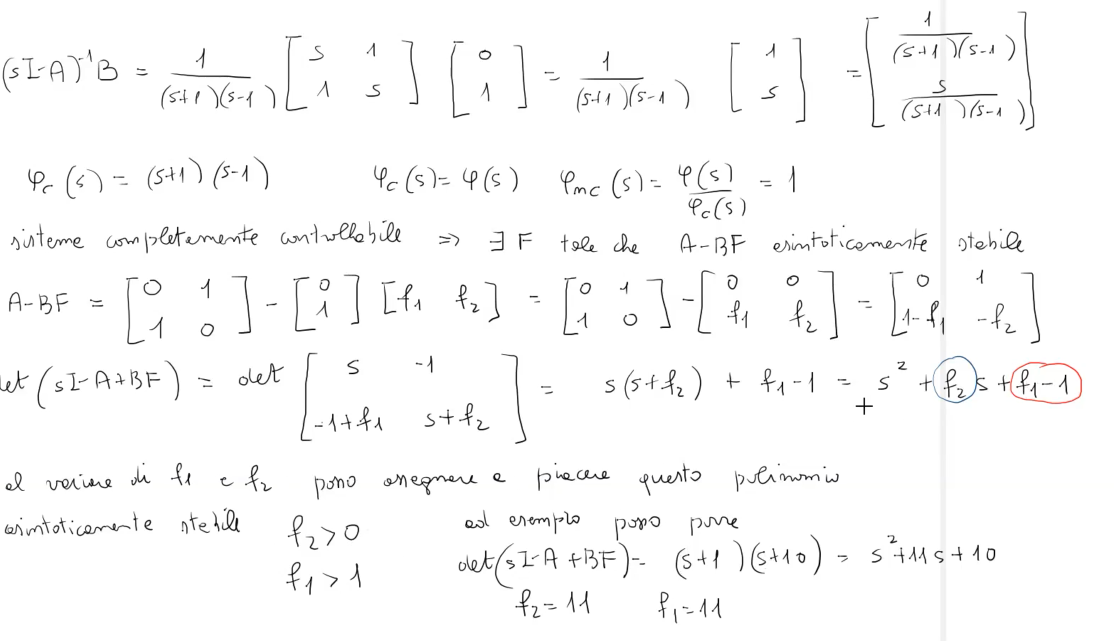 (sI-A)⁻¹B = 1/((s+1)(s-1)) [s 1; 1 s] [0; 1] = 1/((s+1)(s-1)) [1; s] = [1/((s+1)(s-1)); s/((s+1)(s-1))]
φc(s) = (s+1)(s-1) φc(s) = φ(s) φmc(s) = φ(s)/φc(s) = 1
sisteme completamente controllabile ⇒ ∃ F tale che A-BF asintoticamente stabile
A-BF = [0 1; 1 0] - [0; 1] [f1 f2] = [0 1; 1 0] - [0 0; f1 f2] = [0 1; 1-f1 -f2]
det(sI-A+BF) = det [s -1; -1+f1 s+f2] = s(s+f2) + f1-1 = s² + f2 s + f1-1
al variare di f1 e f2 posso assegnare a piacere questo polinomio
asintoticamente stabile f2>0 f1>1
ad esempio posso porre
det(sI-A+BF) = (s+1)(s+10) = s²+11s+10
f2=11 f1=11